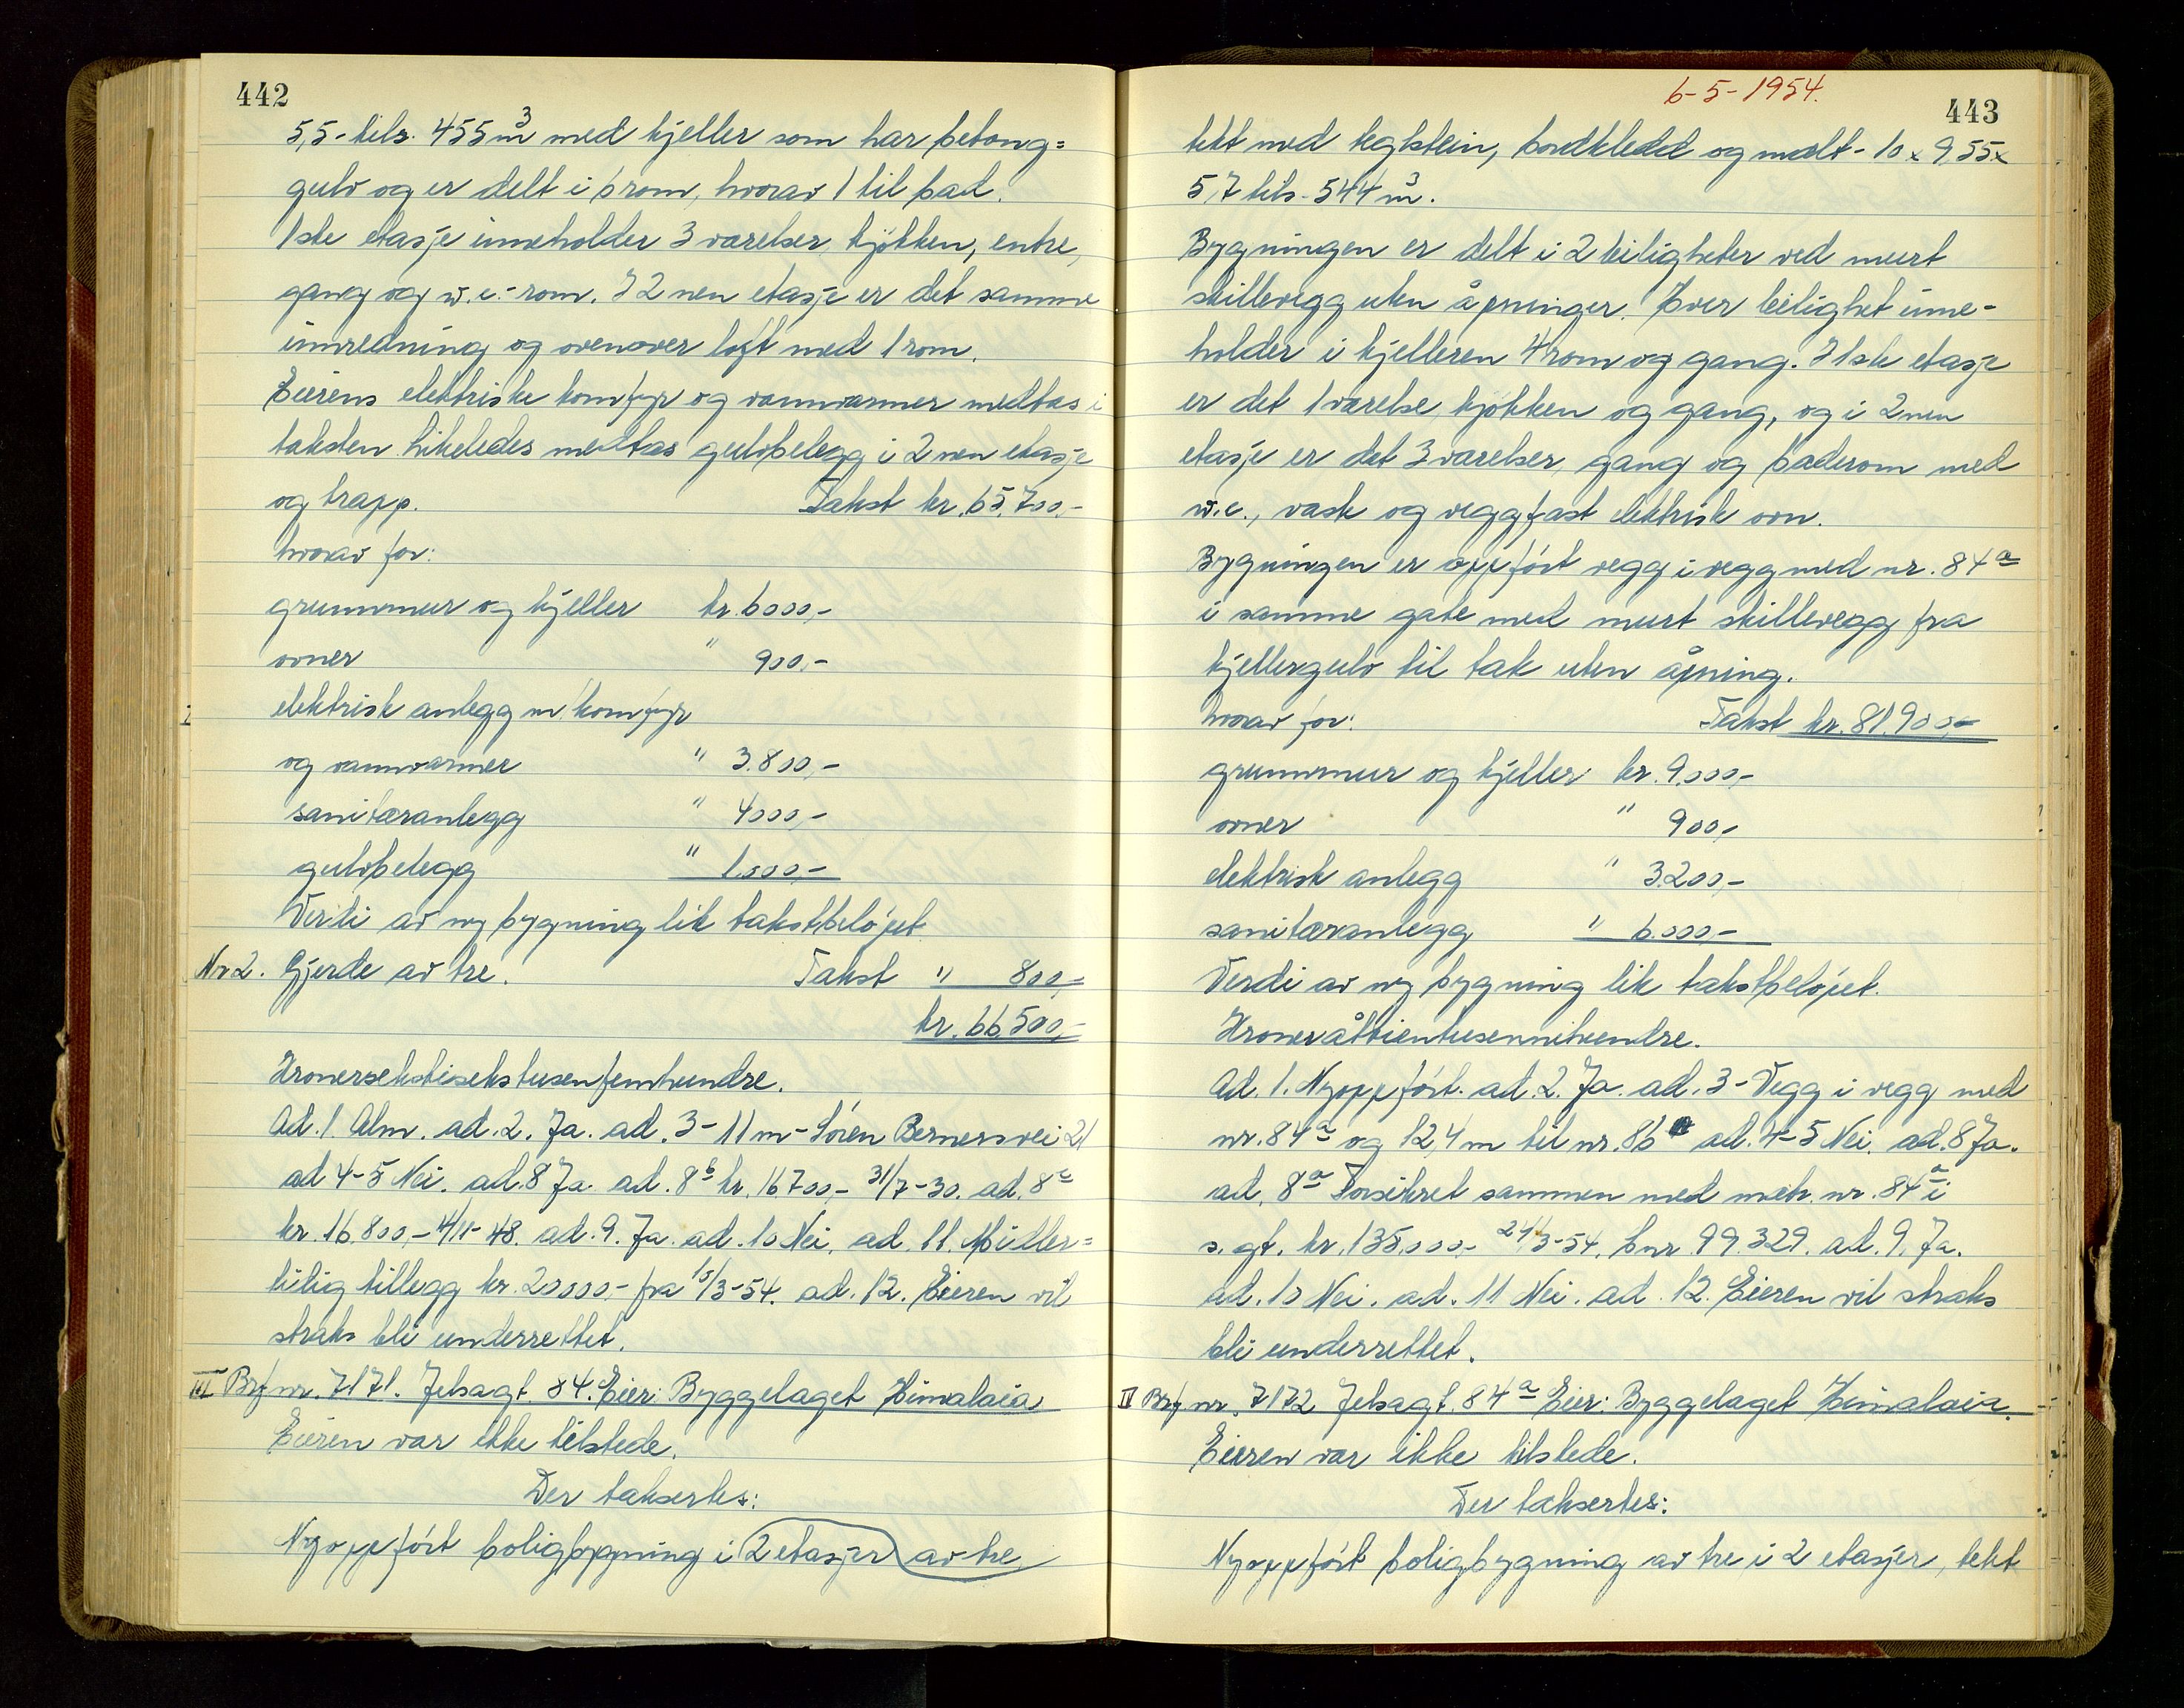 442
5,5- tils. 455 m³ med kjeller som har betong=
gulv og er delt i 6 rom, hvorav 1 til bad.
1ste etasje inneholder 3 værelser, kjökken, entre,
gang og w.c.-rom. I 2nen etasje er det samme
innredning og ovenover loft med 1 rom.
Eierens elektriske komfyr og vannvarmer medtas i
taksten likeledes medtas gulvbelegg i 2nen etasje
og trapp. Takst kr. 65.700,-
hvorav for:
grunnmur og kjeller kr. 6000,-
ovner " 900,-
elektrisk anlegg m/komfyr
og vannvarmer " 3.800,-
sanitæranlegg " 4000,-
gulvbelegg " 1.000,-
Verdi av ny bygning lik takstbelöpet
Nr 2. Gjerde av tre. Takst " 800,-
kr. 66.500,-
Kronersekstisekstusenfemhundre.
Ad. 1. Alm. ad. 2. Ja. ad. 3 - 11 m - Sören Bernersvei 21
ad 4-5 Nei. ad. 8 Ja. ad. 8ᵇ kr. 16700,- 31/7-30. ad. 8ᶜ
kr. 16.800,- 4/11-48. ad. 9. Ja. ad. 10 Nei. ad. 11. Midler=
tidig tillegg kr. 20000,- fra 15/3-54. ad. 12. Eieren vil
straks bli underrettet.
III Brf nr. 7171. Jelsagt. 84. Eier: Byggelaget Himalaia
Eieren var ikke tilstede.
Der taksertes:
Nyoppfört boligbygning i 2 etasjer av tre
6-5-1954.
443
tekt med teglstein, bordkledd og malt - 10 x 9,55 x
5,7 tils. 544 m³.
Bygningen er delt i 2 leiligheter ved murt
skillevegg uten åpninger. Hver leilighet inne-
holder i kjelleren 4 rom og gang. I 1ste etasje
er det 1 værelse, kjökken og gang, og i 2nen
etasje er det 3 værelser, gang og baderom med
w.c., vask og veggfast elektrisk ovn.
Bygningen er oppfört vegg i vegg med nr. 84ᵃ
i samme gate med murt skillevegg fra
kjellergulv til tak uten åpning.
hvorav for: Takst kr. 81.900,-
grunnmur og kjeller kr. 9.000,-
ovner " 900,-
elektrisk anlegg " 3.200,-
sanitæranlegg " 6.000,-
Verdi av ny bygning lik takstbelöpet.
Kroneråttientusennihundre.
Ad. 1. Nyoppfört. ad. 2. Ja. ad. 3 - Vegg i vegg med
nr. 84ᵃ og 12,4 m til nr. 86 ad. 4-5 Nei. ad. 8 Ja.
ad. 8ᵃ Forsikret sammen med matr. nr. 84ᵃ i
s. gt. kr. 135.000,- 24/3-54. bnr. 99.329. ad. 9. Ja.
ad. 10 Nei. ad. 11 Nei. ad. 12. Eieren vil straks
bli underrettet.
IV Brf nr. 7172 Jelsagt. 84ᵃ Eier: Byggelaget Himalaia.
Eieren var ikke tilstede.
Der taksertes:
Nyoppfört boligbygning av tre i 2 etasjer, tekt